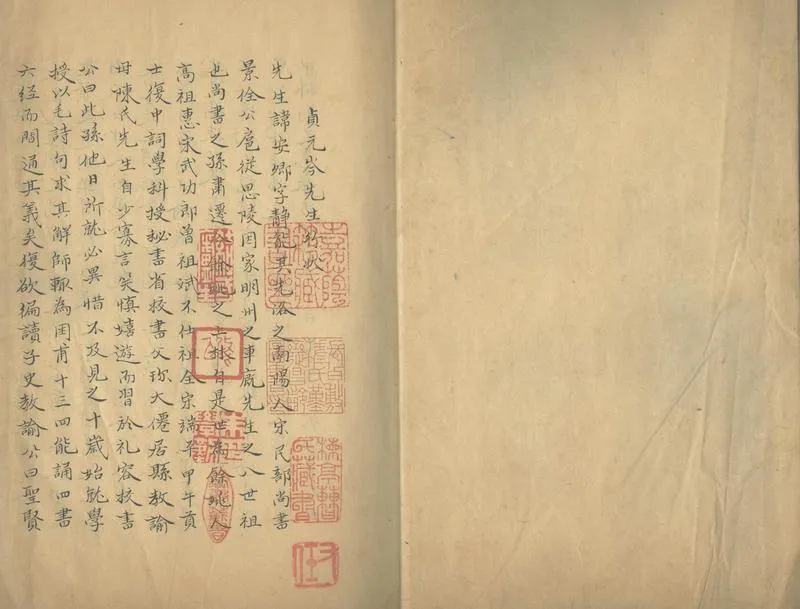 貞元岑先生行狀
先生諱安卿字靜能其先洛之南陽人宋民部尚書
景徐公扈從思陵因家明州之車廄先生之八世祖
也尚書之孫肅遷餘姚之上林自是世為餘姚人
高祖惠宋武功郎曾祖斌不仕祖全宋端平甲午貢
士復中詞學科授秘書省校書父珎大僊居縣教諭
母陳氏先生自少寡言笑慎嬉遊而習於礼容校書
公曰此孫他日所就必異惜不及見之十歲始就學
授以毛詩句求其解師輒為困甫十三四能誦四書
六经而間通其義矣復欲徧讀子史教諭公曰聖賢
棟亭曹氏藏書